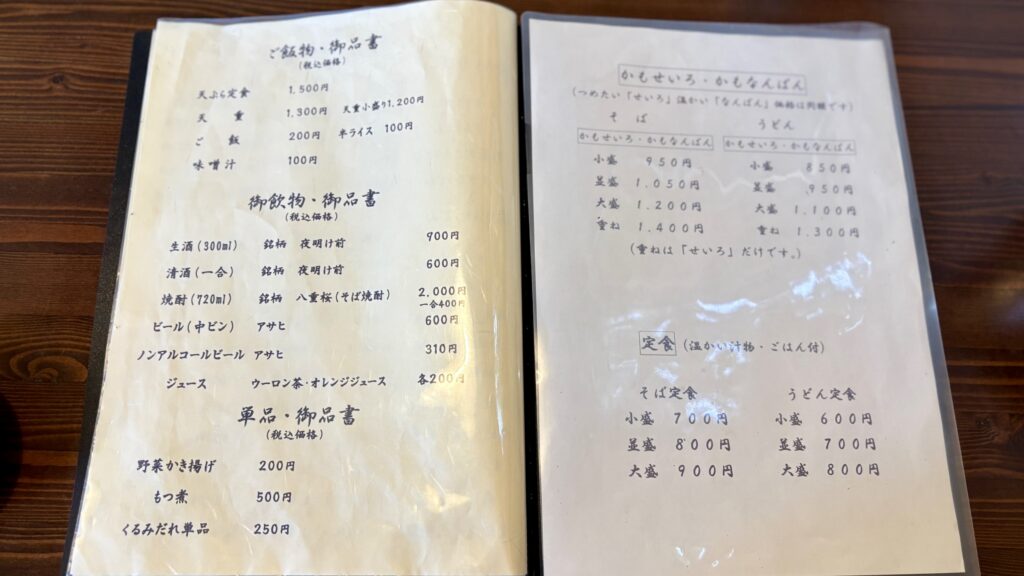 ご飯物・御品書
(税込価格)
天ぷら定食 1,500円
天重 1,300円 天重小盛り1,200円
ご飯 200円 半ライス 100円
味噌汁 100円
御飲物・御品書
(税込価格)
生酒(300ml) 銘柄 夜明け前 900円
清酒(一合) 銘柄 夜明け前 600円
焼酎(720ml) 銘柄 八重桜(そば焼酎) 2,000円
一合400円
ビール(中ビン) アサヒ 600円
ノンアルコールビール アサヒ 310円
ジュース ウーロン茶・オレンジジュース 各200円
単品・御品書
(税込価格)
野菜かき揚げ 200円
もつ煮 500円
くるみだれ単品 250円
かもせいろ・かもなんばん
(つめたい「せいろ」温かい「なんばん」価格は同額です)
そば うどん
かもせいろ・かもなんばん かもせいろ・かもなんばん
小盛 950円 小盛 850円
並盛 1.050円 並盛 950円
大盛 1.200円 大盛 1.100円
重ね 1.400円 重ね 1.300円
(重ねは「せいろ」だけです。)
定食 (温かい汁物・ごはん付)
そば定食 うどん定食
小盛 700円 小盛 600円
並盛 800円 並盛 700円
大盛 900円 大盛 800円